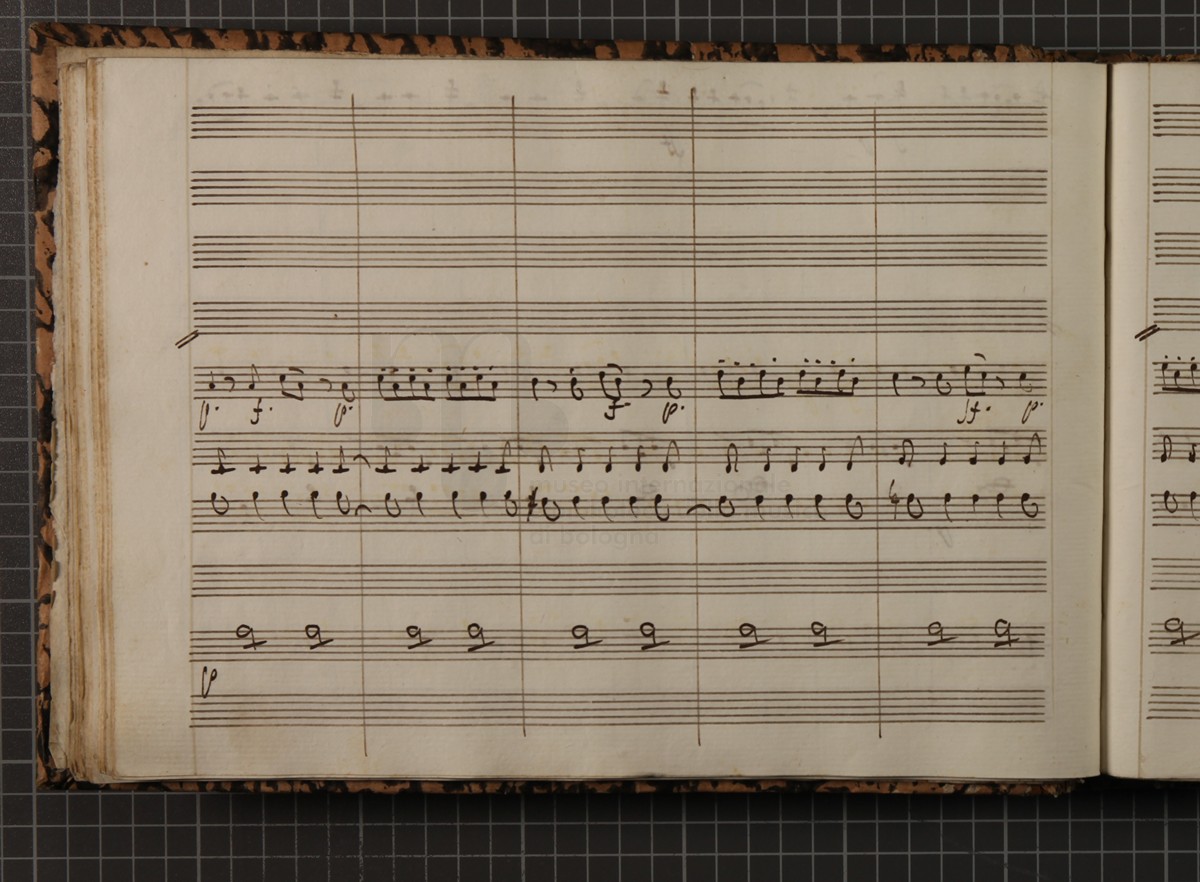 p. f. p. f. p. sf. p.
museo internazionale
di bologna
p